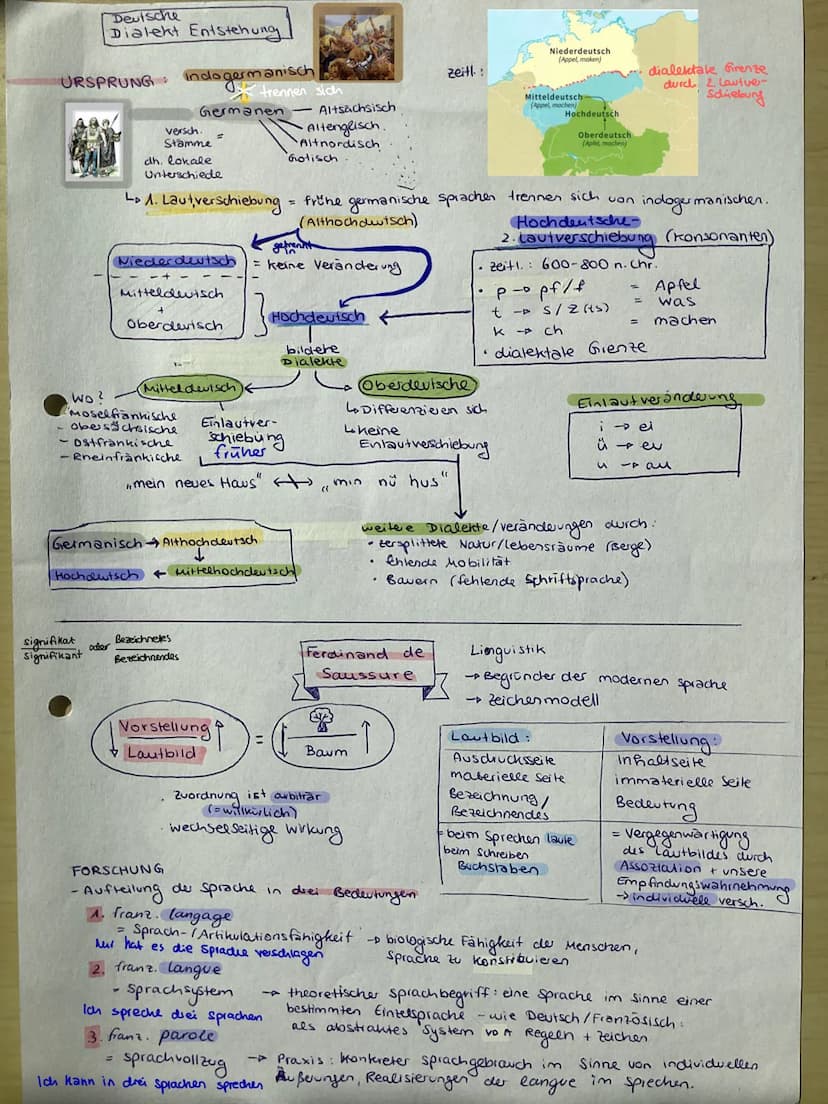 Deutsche
Dialekt Entstehung
URSPRUNG: indogermanisch
trennen sich
Germanen — Altsächsisch
Altenglisch
Altnordisch
Gotisch
versch.
Stämme =
dh. lokale
Unterschiede
zeitl.:
Niederdeutsch
(Appel, maken)
Mitteldeutsch
(Appel, machen)
Hochdeutsch
Oberdeutsch
(Apfel, machen)
dialektale Grenze
durch 2. Lautver-
schiebung
↳ 1. Lautverschiebung = frühe germanische sprachen trennen sich von indogermanischen.
(Althochdeutsch)
getrennt
in
Niederdeutsch = keine Veränderung
+
Mitteldeutsch
+
Oberdeutsch
Hochdeutsch
Hochdeutsche-
2. Lautverschiebung (Konsonanten)
• zeitl.: 600-800 n. Chr.
• p → pf/f = Apfel
t → s/z(ts) = was
k → ch = machen
• dialektale Grenze
bildete
Dialekte
Mitteldeutsch
Oberdeutsche
Wo?
- Moselfränkische
- Obersächsische
- Ostfränkische
- Rheinfränkische
Einlautver-
schiebung
früher
↳ Differenzieren sich
↳ keine
Einlautverschiebung
Einlautveränderung
i → ei
ü → eu
u → au
„mein neues Haus" ↔ „min nü hus"
Germanisch → Althochdeutsch
↓
Hochdeutsch ← Mittelhochdeutsch
weitere Dialekte/veränderungen durch:
• zersplittete Natur/lebensräume (Berge)
• fehlende Mobilität
• Bauern (fehlende Schriftsprache)
Signifikat
Signifikant
oder
Bezeichnetes
Bezeichnendes
Ferdinand de
Saussure
Linguistik
→ Begründer der modernen sprache
→ Zeichenmodell
Vorstellung
Lautbild
=
Baum
. Zuordnung ist arbiträr
(= willkürlich)
. wechselseitige wirkung
Lautbild:
Ausdrucksseite
materielle Seite
Bezeichnung/
Bezeichnendes
= beim Sprechen laute
beim Schreiben
Buchstaben
Vorstellung:
Inhaltseite
immaterielle Seite
Bedeutung
= Vergegenwärtigung
des Lautbildes durch
Assoziation + unsere
Empfindungswahrnehmung
→ individuelle versch.
FORSCHUNG
- Aufteilung der Sprache in drei Bedeutungen
1. franz. langage
= Sprach-/Artikulationsfähigkeit → biologische Fähigkeit der Menschen,
Sprache zu konstituieren
hat es die Sprache verschlagen
2. franz. langue
= Sprachsystem → theoretischer Sprachbegriff: eine Sprache im Sinne einer
bestimmten Einzelsprache - wie Deutsch/Französisch:
als abstraktes System von Regeln + zeichen
Ich spreche drei sprachen
3. franz. parole
= sprachvollzug → Praxis: konkreter sprachgebrauch im Sinne von individuellen
Äußerungen, Realisierungen der langue im sprechen.
Ich kann in drei Sprachen sprechen